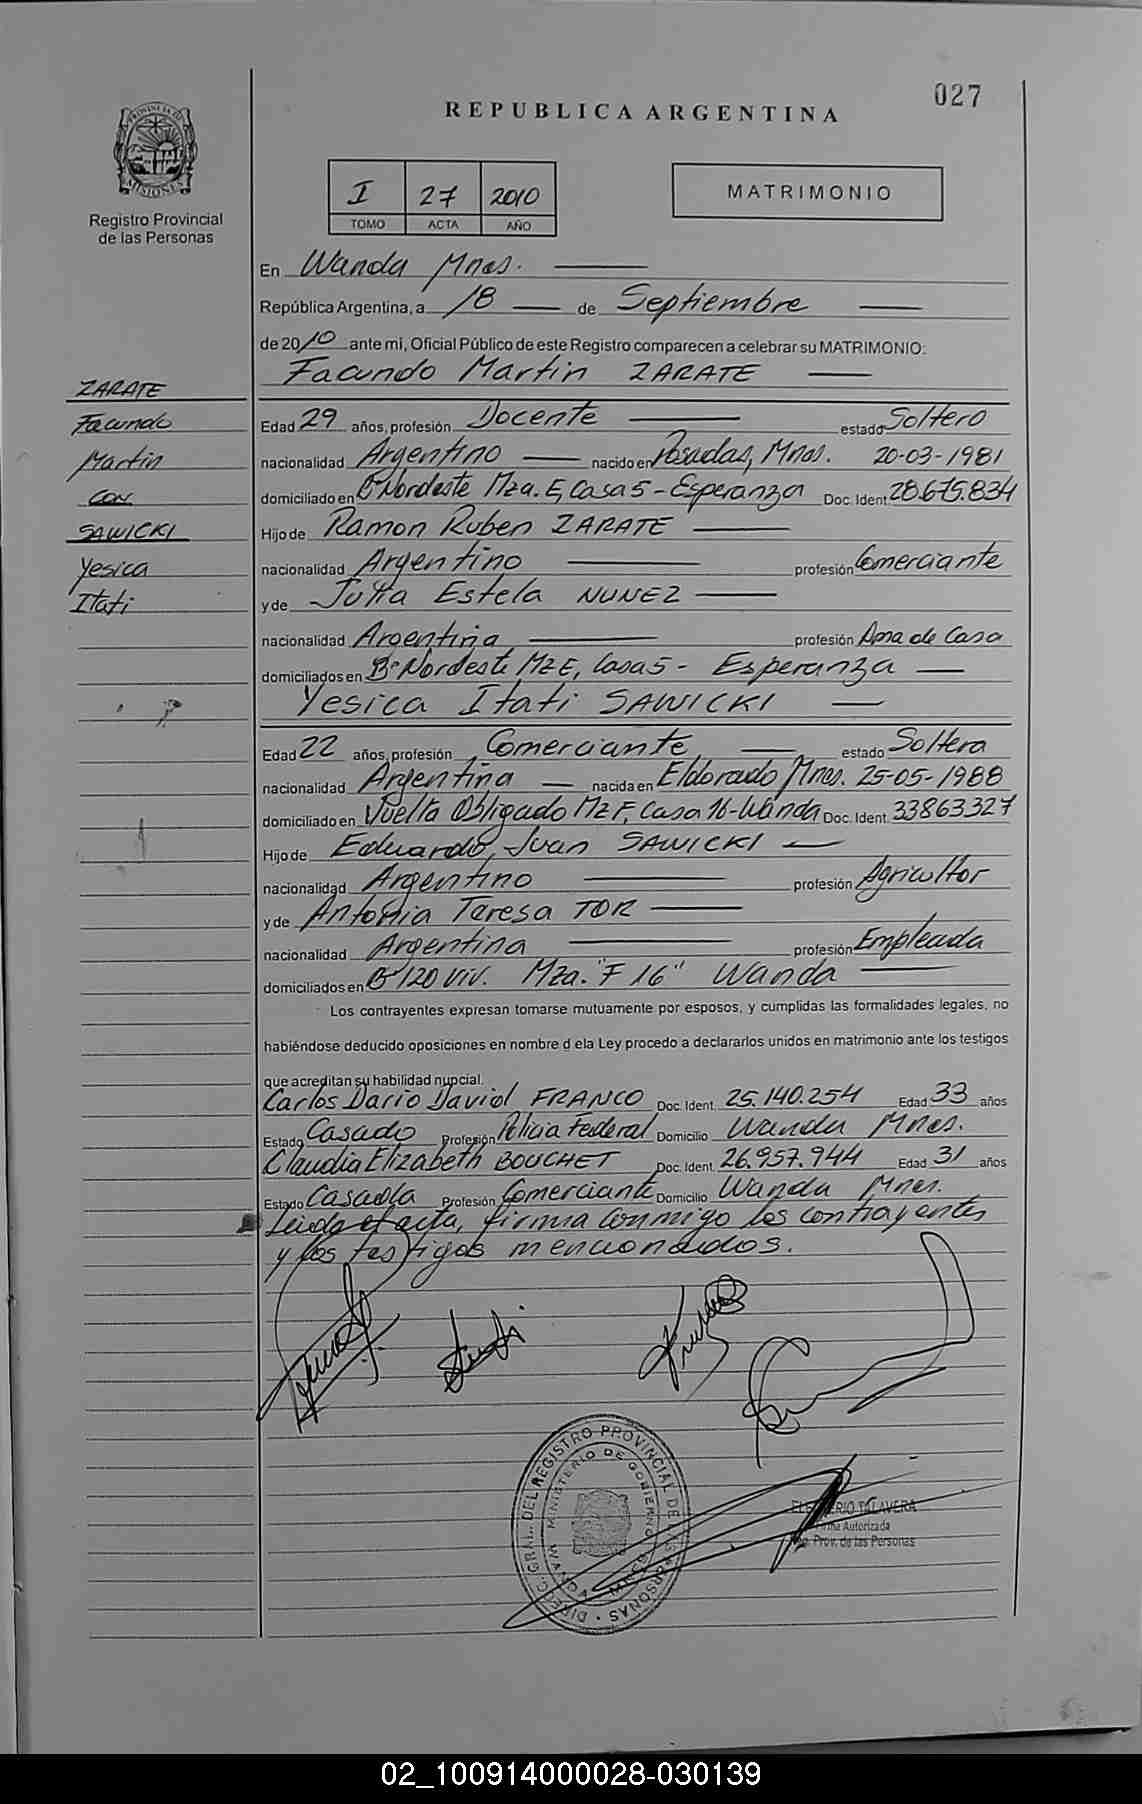 027
REPUBLICA ARGENTINA
PROVINCIA DE MISIONES
Registro Provincial
de las Personas
I 27 2010
TOMO ACTA AÑO
MATRIMONIO
En Wanda Mnes.
República Argentina, a 18 de Septiembre
de 2010 ante mi, Oficial Público de este Registro comparecen a celebrar su MATRIMONIO:
Facundo Martin ZARATE
ZARATE
Facundo
Martin
CON
SAWICKI
Yesica
Itati
Edad 29 años, profesión Docente estado Soltero
nacionalidad Argentino nacido en Posadas, Mnes. 20-03-1981
domiciliado en Bº Nordeste Mza. E, Casa 5 - Esperanza Doc. Ident. 28.675.834
Hijo de Ramon Ruben ZARATE
nacionalidad Argentino profesión Comerciante
y de Julia Estela NUNEZ
nacionalidad Argentina profesión Ama de Casa
domiciliados en Bº Nordeste, Mz E, Casa 5 - Esperanza
Yesica Itati SAWICKI
Edad 22 años, profesión Comerciante estado Soltera
nacionalidad Argentina nacida en Eldorado Mnes. 25-05-1988
domiciliado en Vuelta Obligado Mz F, Casa 16-Wanda Doc. Ident. 33863327
Hijo de Eduardo Juan SAWICKI
nacionalidad Argentino profesión Agricultor
y de Antonia Teresa TOR
nacionalidad Argentina profesión Empleada
domiciliados en Bº 120 viv. Mza. "F 16" Wanda
Los contrayentes expresan tomarse mutuamente por esposos, y cumplidas las formalidades legales, no
habiéndose deducido oposiciones en nombre d ela Ley procedo a declararlos unidos en matrimonio ante los testigos
que acreditan su habilidad nupcial.
Carlos Dario David FRANCO Doc. Ident. 25.140.254 Edad 33 años
Estado Casado Profesión Policia Federal Domicilio Wanda Mnes.
Claudia Elizabeth BOUCHET Doc. Ident. 26.957.944 Edad 31 años
Estado Casada Profesión Comerciante Domicilio Wanda Mnes.
Leida el acta, firma conmigo los contrayentes
y los testigos mencionados.
DIREC. GRAL. DEL REGISTRO PROVINCIAL DE LAS PERSONAS
MINISTERIO DE GOBIERNO
WANDA
TALAVERA
Autorizada
Prov. de las Personas
02_100914000028-030139